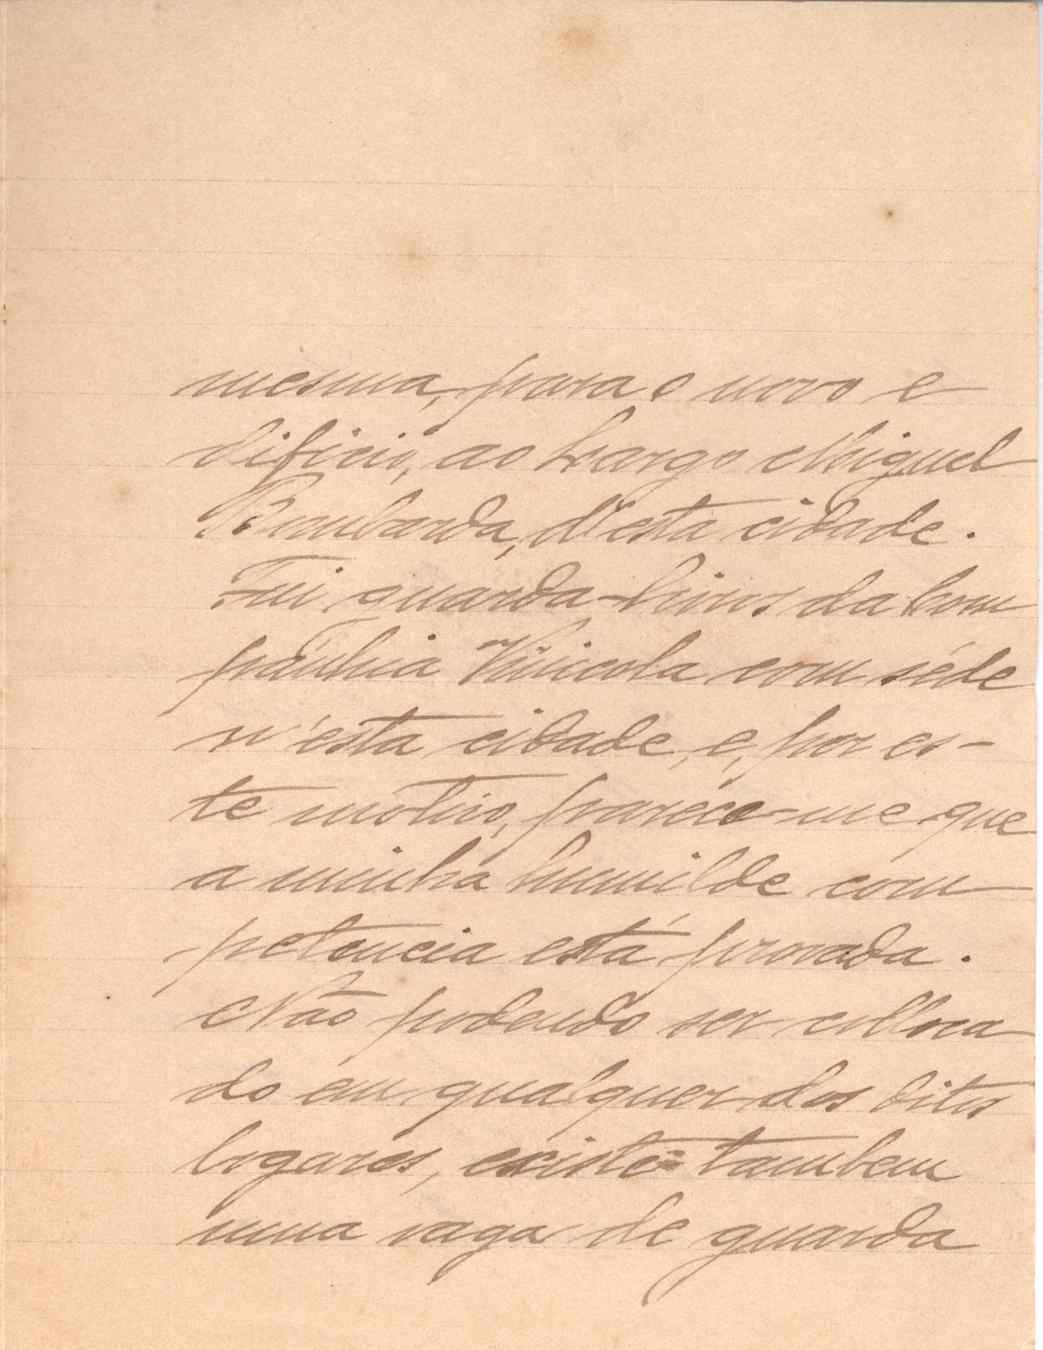 mesma, para o novo e
dificio, ao Largo Miguel
Bombarda, d'esta cidade.
Fui guarda-livros da Com
panhia Vinicola com séde
n'esta cidade, e, por es-
te motivo, parece-me que
a minha humilde com
petencia está provada.
Não podendo ser colloca
do em qualquer dos ditos
logares, existe tambem
uma vaga de guarda